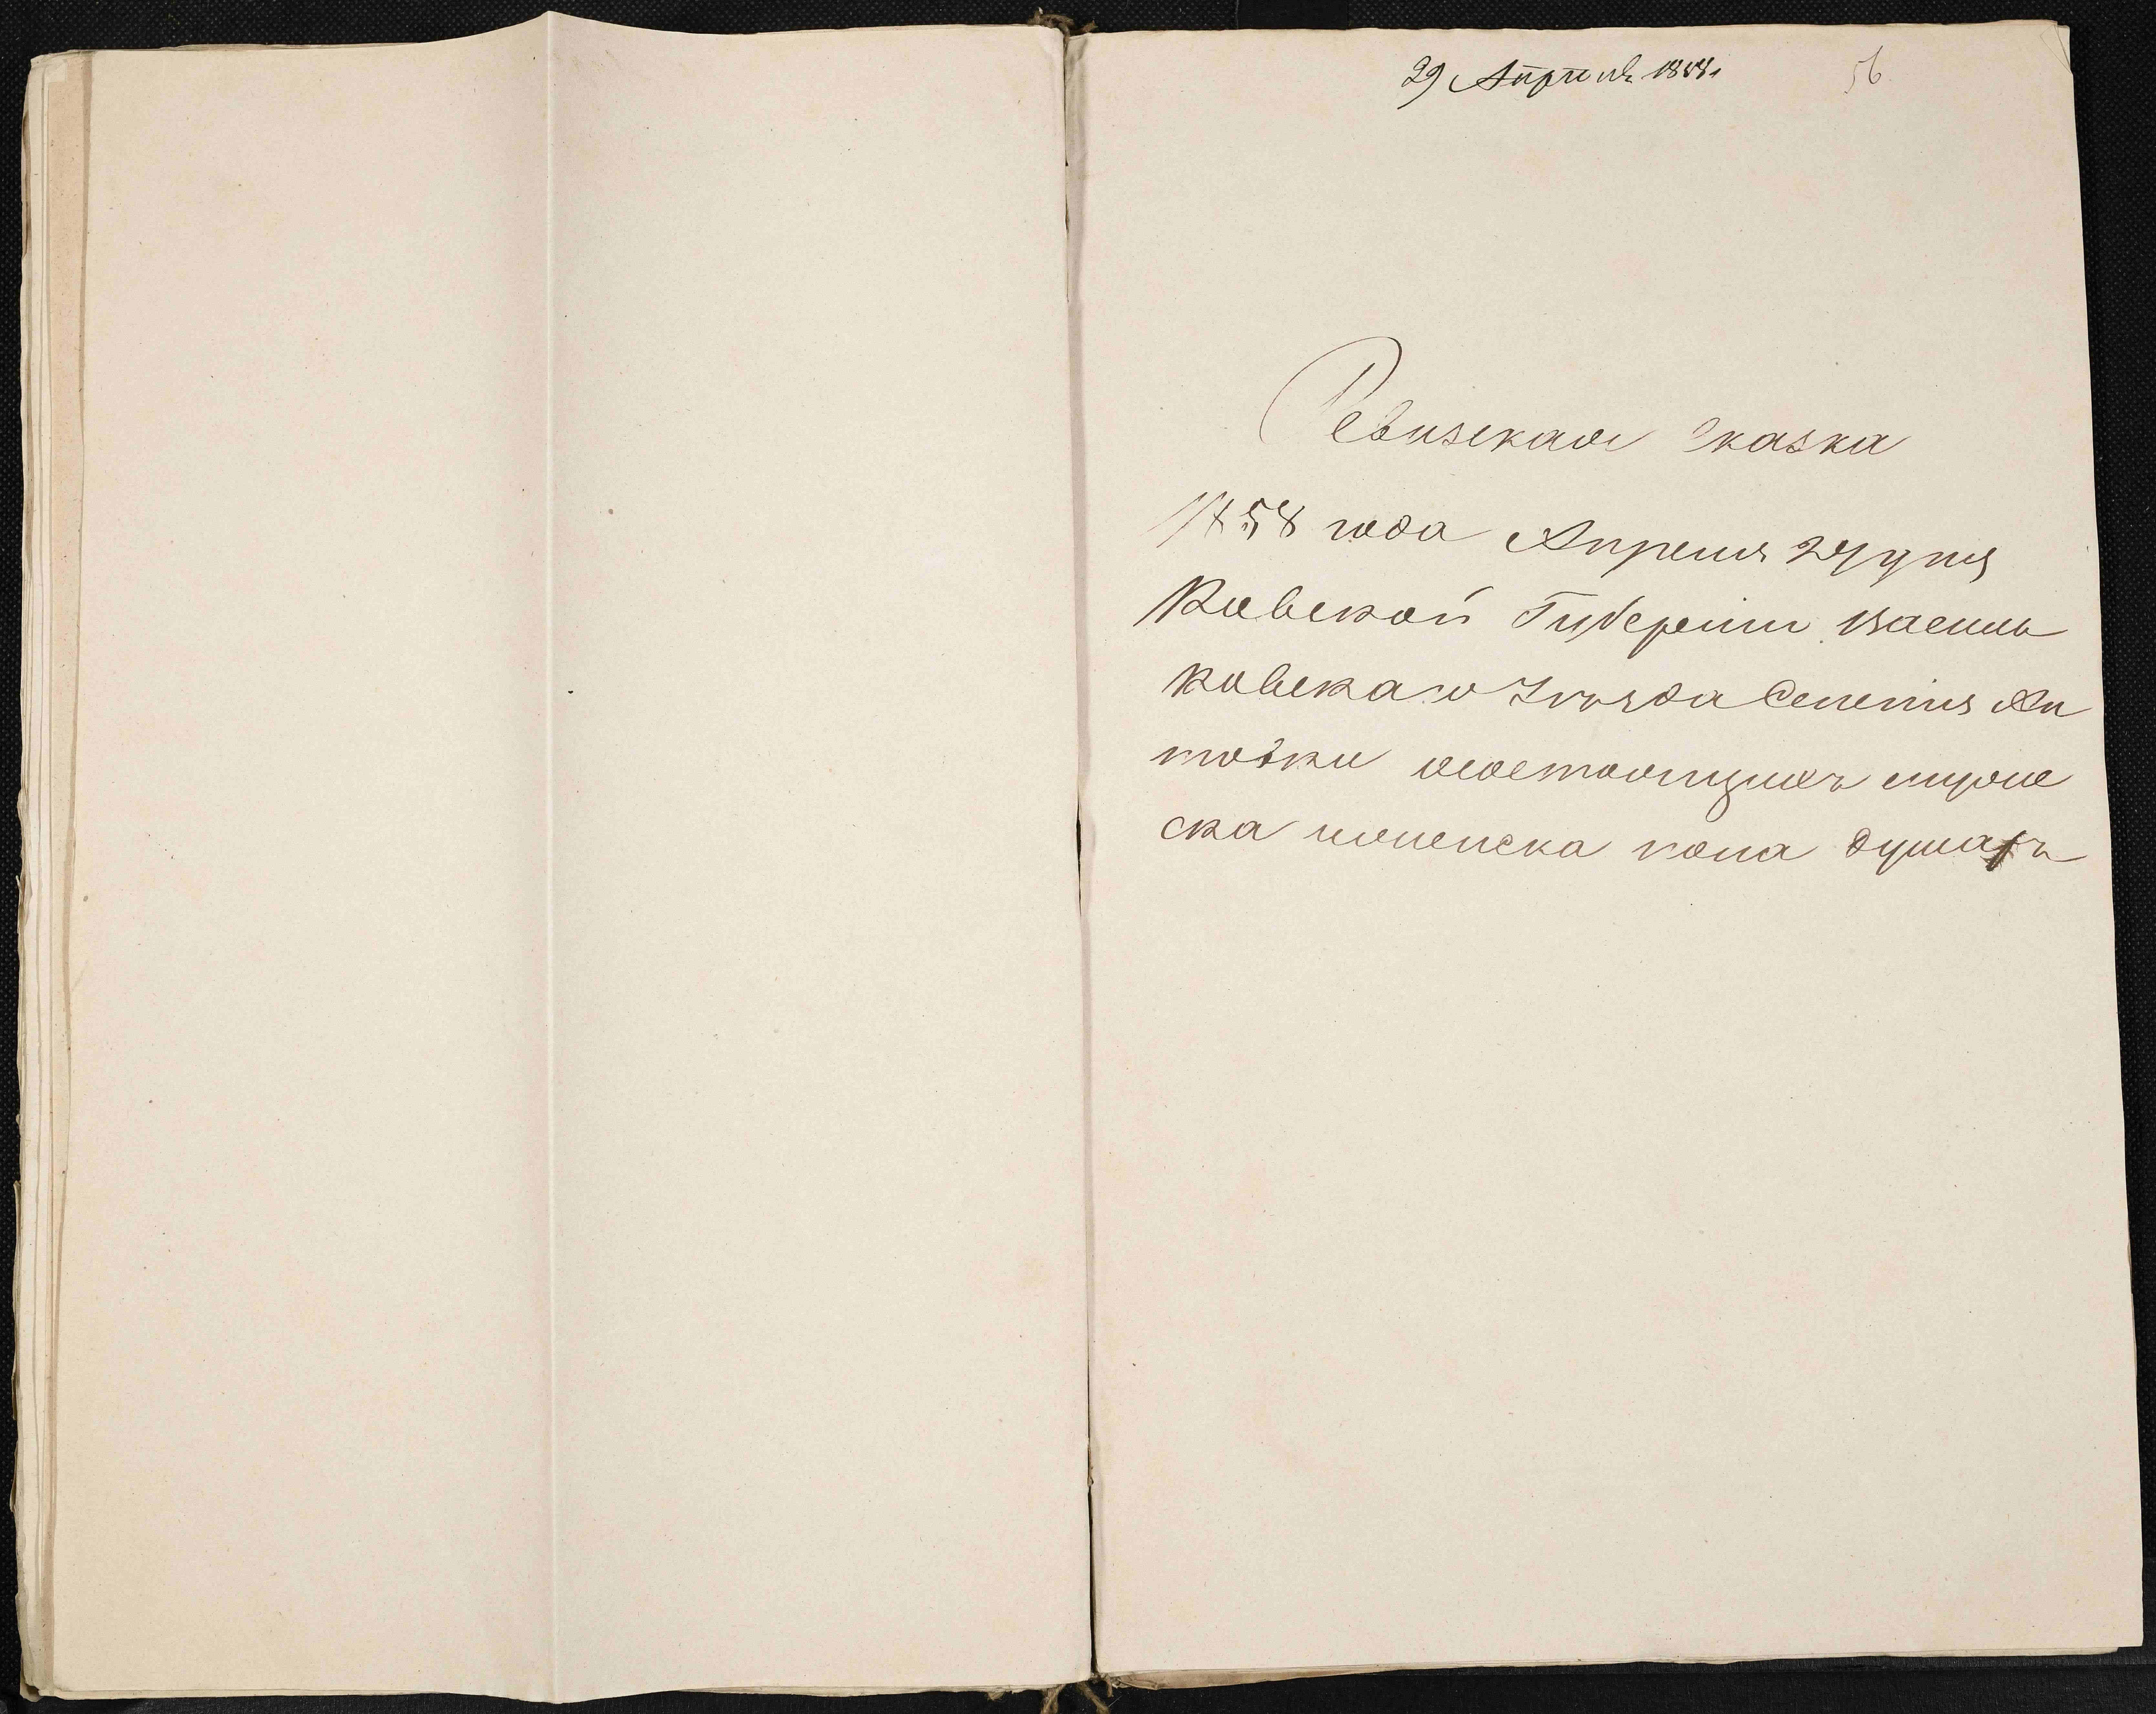 29 Апреля 1858. 56
Ревизская сказка
1858 года Апреля дня
Киевской Губерніи Василь
ковскаго Уезда Селенія Ан
товки о состоящихъ мужес
ска женска пола душахъ